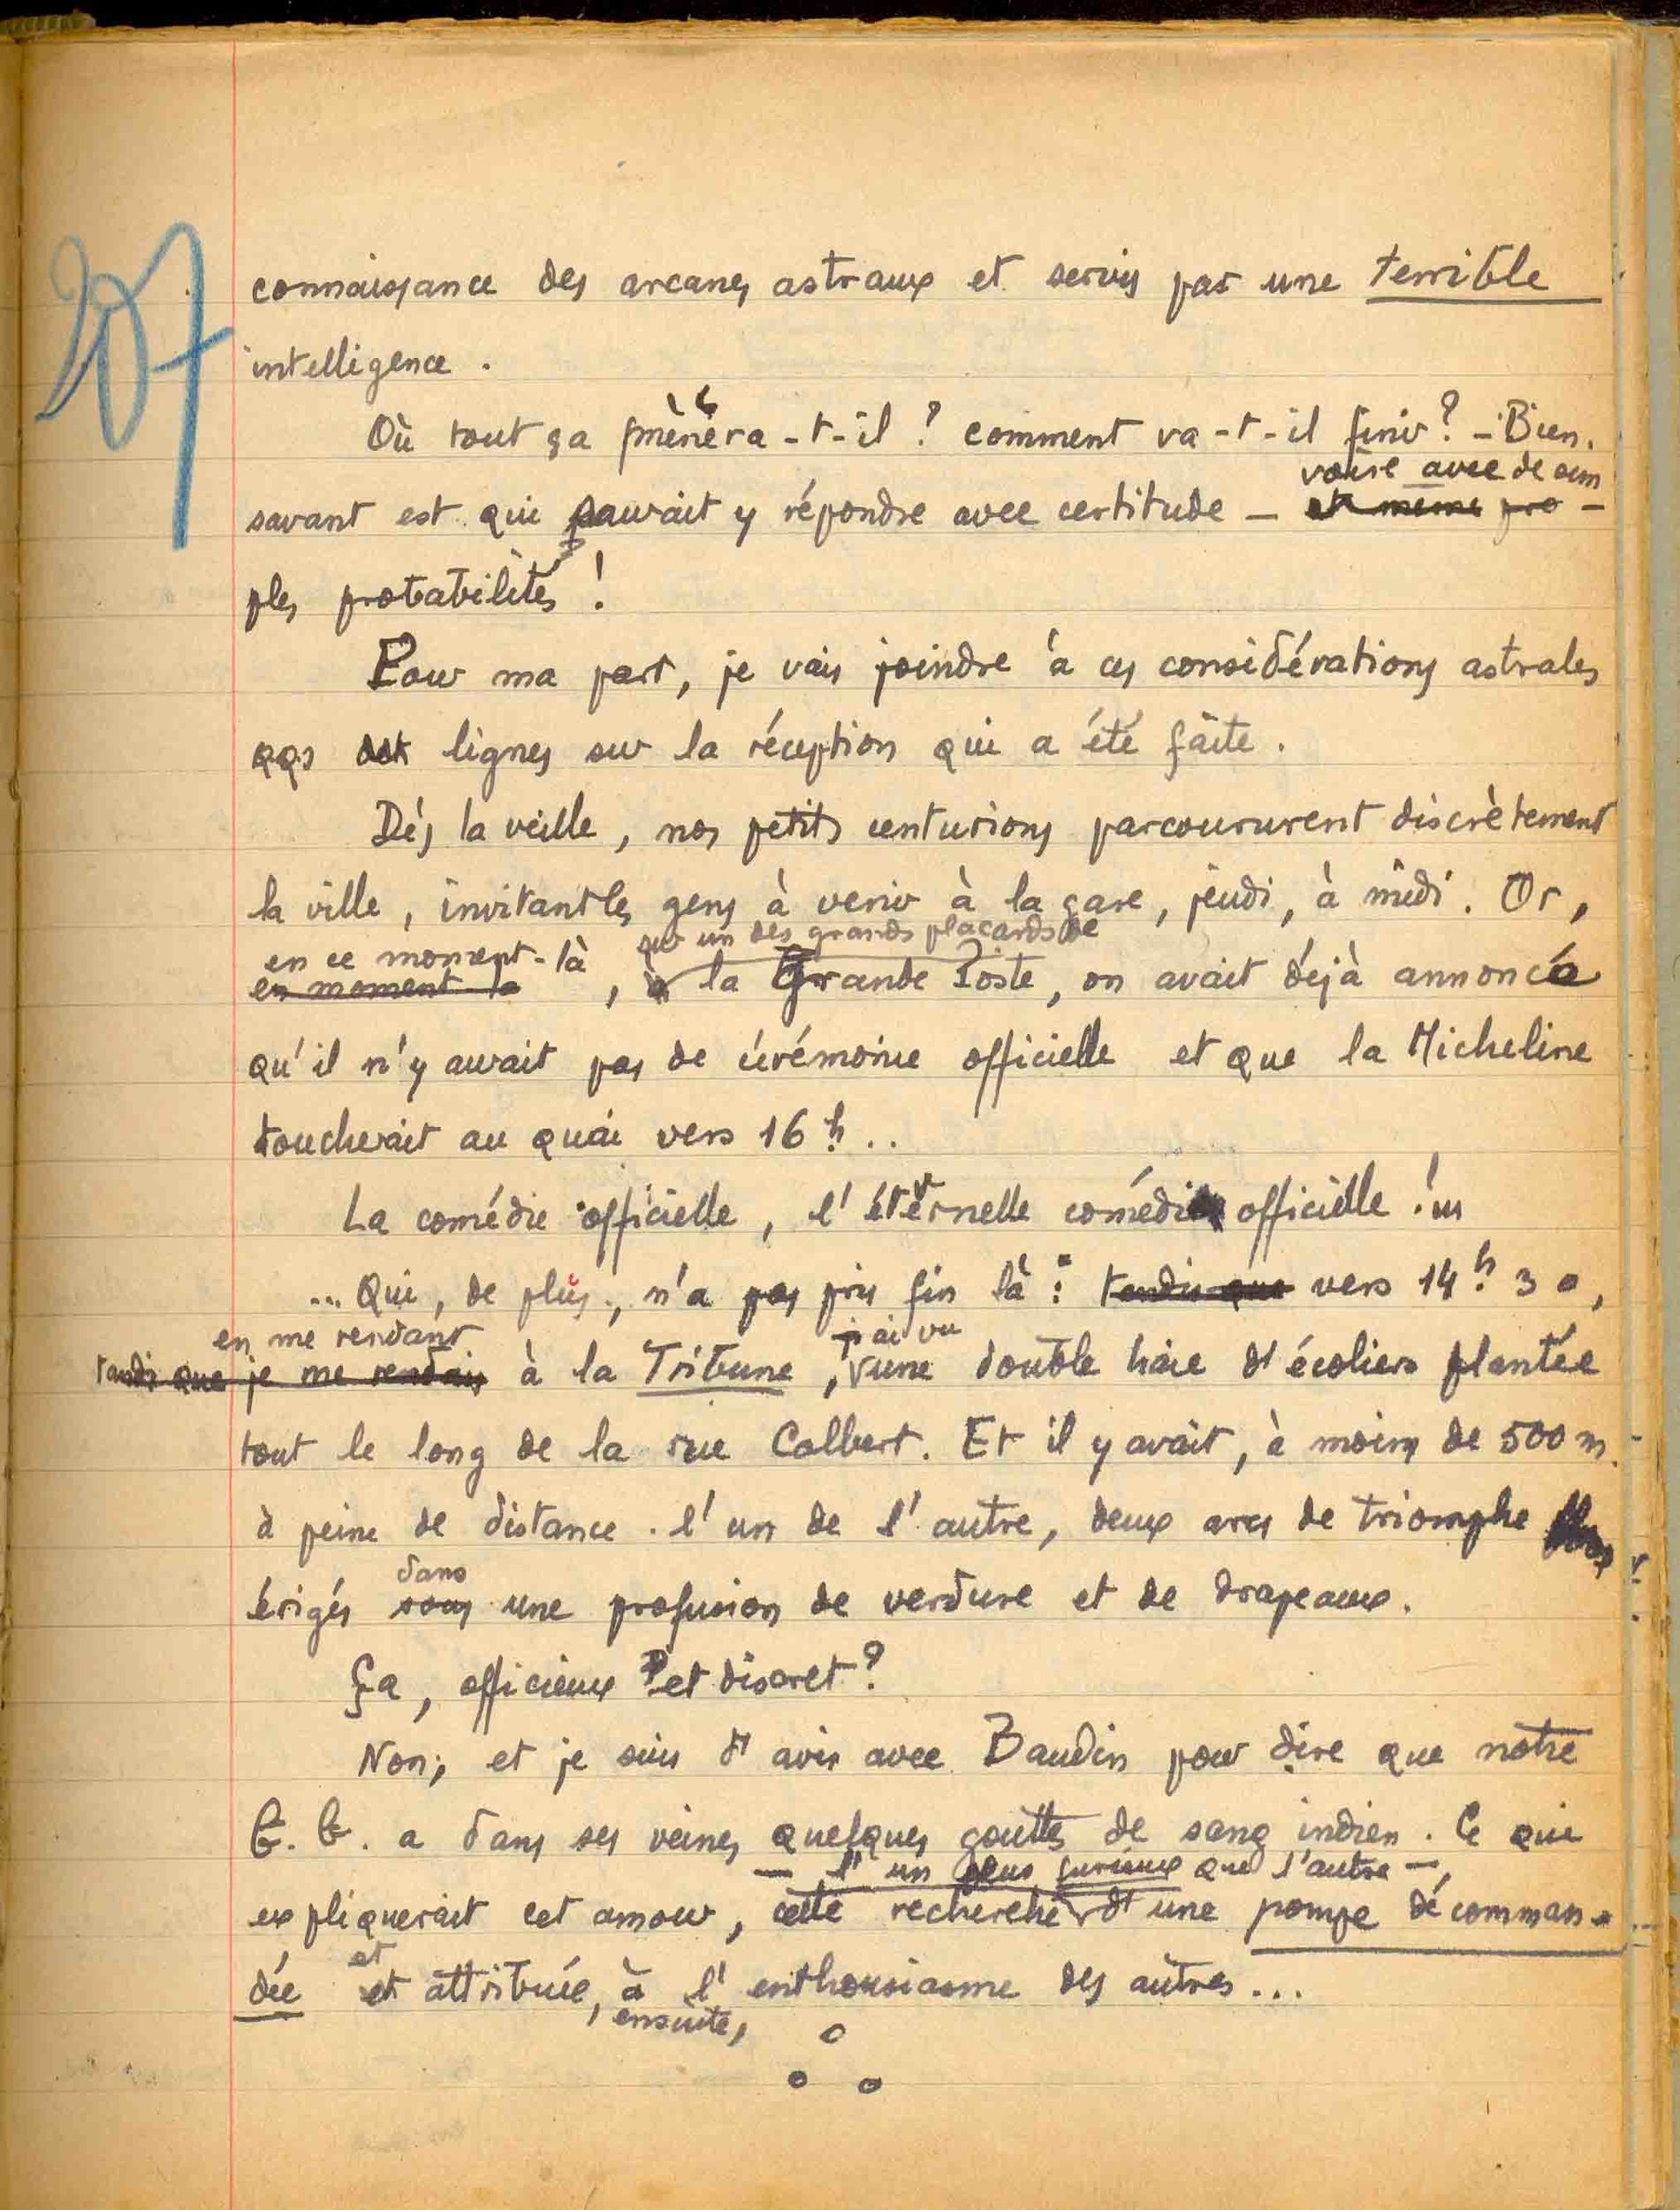 207
connaissance des arcanes astraux et servis par une terrible
intelligence.
Où tout ça mènera-t-il ? comment va-t-il finir ? – Bien.
voire avec de sim
savant est qui pourrait y répondre avec certitude – et même pro –
ples probabilités !
Pour ma part, je vais joindre à ces considérations astrales
qqs lignes sur la réception qui a été faite.
Dès la veille, nos petits centurions parcoururent discrètement
la ville, invitant les gens à venir à la gare, jeudi, à midi. Or,
en ce moment-là sur un des grands placards de
en moment là , à la Grande Poste, on avait déjà annoncé
qu'il n'y aurait pas de cérémonie officielle et que la Micheline
toucherait au quai vers 16 h ..
La comédie officielle, l'éternelle comédie officielle !...
... Qui, de plus, n'a pas pris fin là : tandis que vers 14 h 30,
en me rendant j'ai vu
tandis que je me rendais à la Tribune, une double haie d'écoliers plantée
tout le long de la rue Colbert. Et il y avait, à moins de 500 m.
à peine de distance l'un de l'autre, deux arcs de triomphe
dans
érigés sous une profusion de verdure et de drapeaux.
Ça, officieux et discret ?
Non ; et je suis d'avis avec Baudin pour dire que notre
G. G. a dans ses veines quelques gouttes de sang indien. Ce qui
– l'un plus furieux que l'autre –,
expliquerait cet amour, cette recherche d'une pompe décomman-
et
dée et attribuée, à l'enthousiasme des autres...
, ensuite,